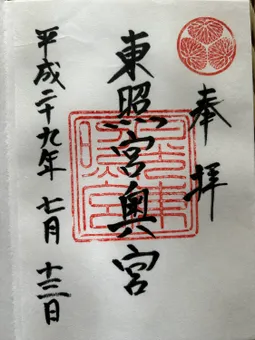 奉拝
東照宮奥宮
平成二十九年七月十三日